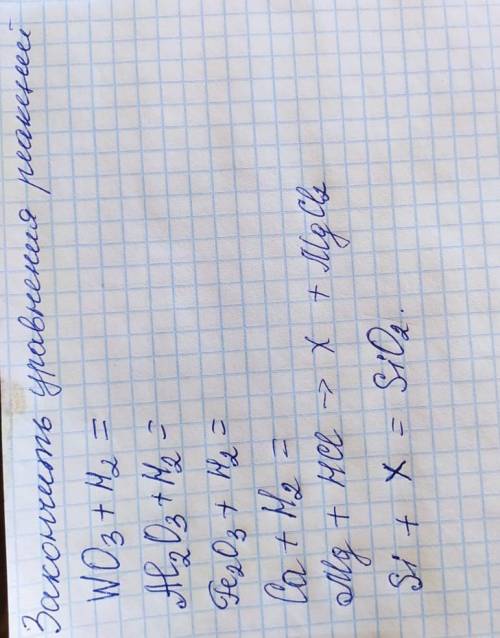 Закончить уравнения реакций
WO3 + H2 =
Al2O3 + H2 =
Fe2O3 + H2 =
Ca + H2 =
Mg + HCl → X + MgCl2
Si + X = SiO2.